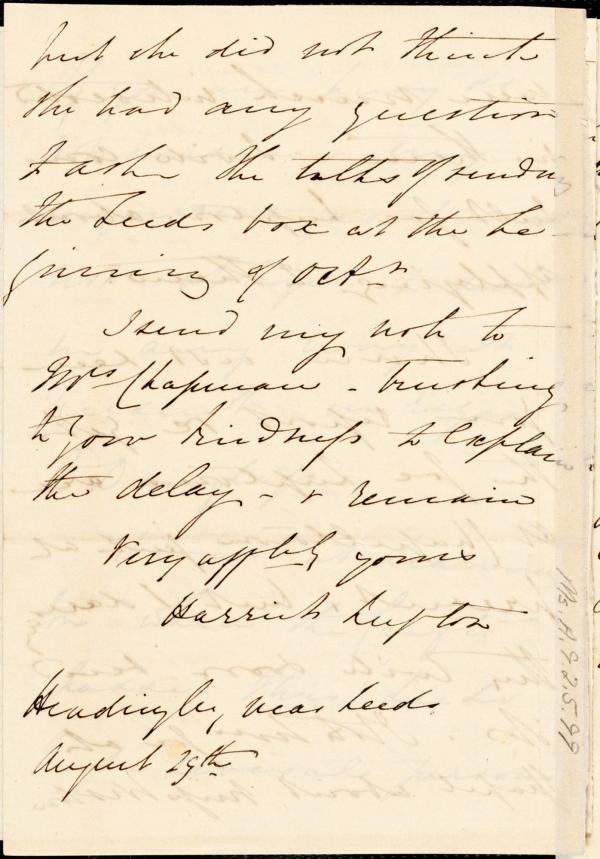 but she did not think
she had any question
to ask. She talks of sending
the Leeds box at the be-
ginning of Octr.
I send my note to
Mrs Chapman - trusting
to your kindness to explain
the delay - & remain
Very affctly yours
Harriet Lupton
Headingley, near Leeds.
August 29th
Ms.A.9.2.5.99